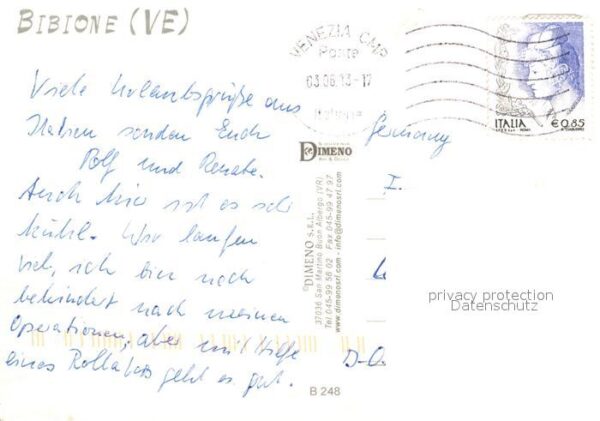 BIBIONE (VE)
VENEZIA CMP
Poste
03.06.13-17
Italiane
ITALIA
€0,85
Viele Urlaubsgrüße aus
Italien senden Euch
Rolf und Renate.
Auch hier ist es sehr
kühl. Wir laufen
viel, ich bin noch
behindert nach meinen
Operationen, aber mit Hilfe
eines Rollators geht es gut.
Germany
I.
DIMENO
©DIMENO S.R.L.
37036 San Martino Buon Albergo (VR)
Tel 045-99 56 02 - Fax 045-99 47 97
www.dimenosrl.com - info@dimenosrl.com
D-0
B 248
privacy protection
Datenschutz